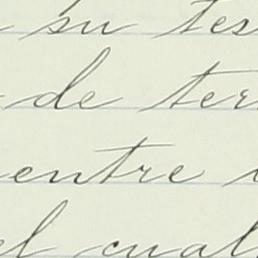 su tes
de ter
entre
el cual